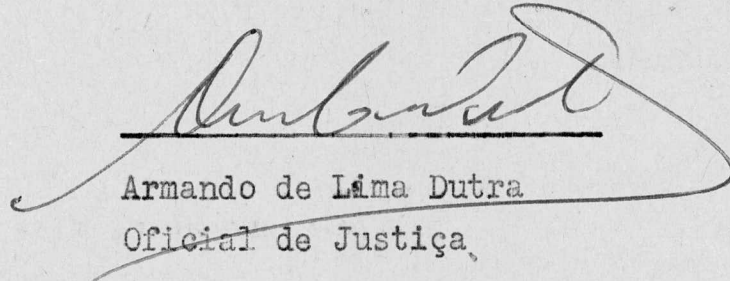 Armando de Lima Dutra
Oficial de Justiça